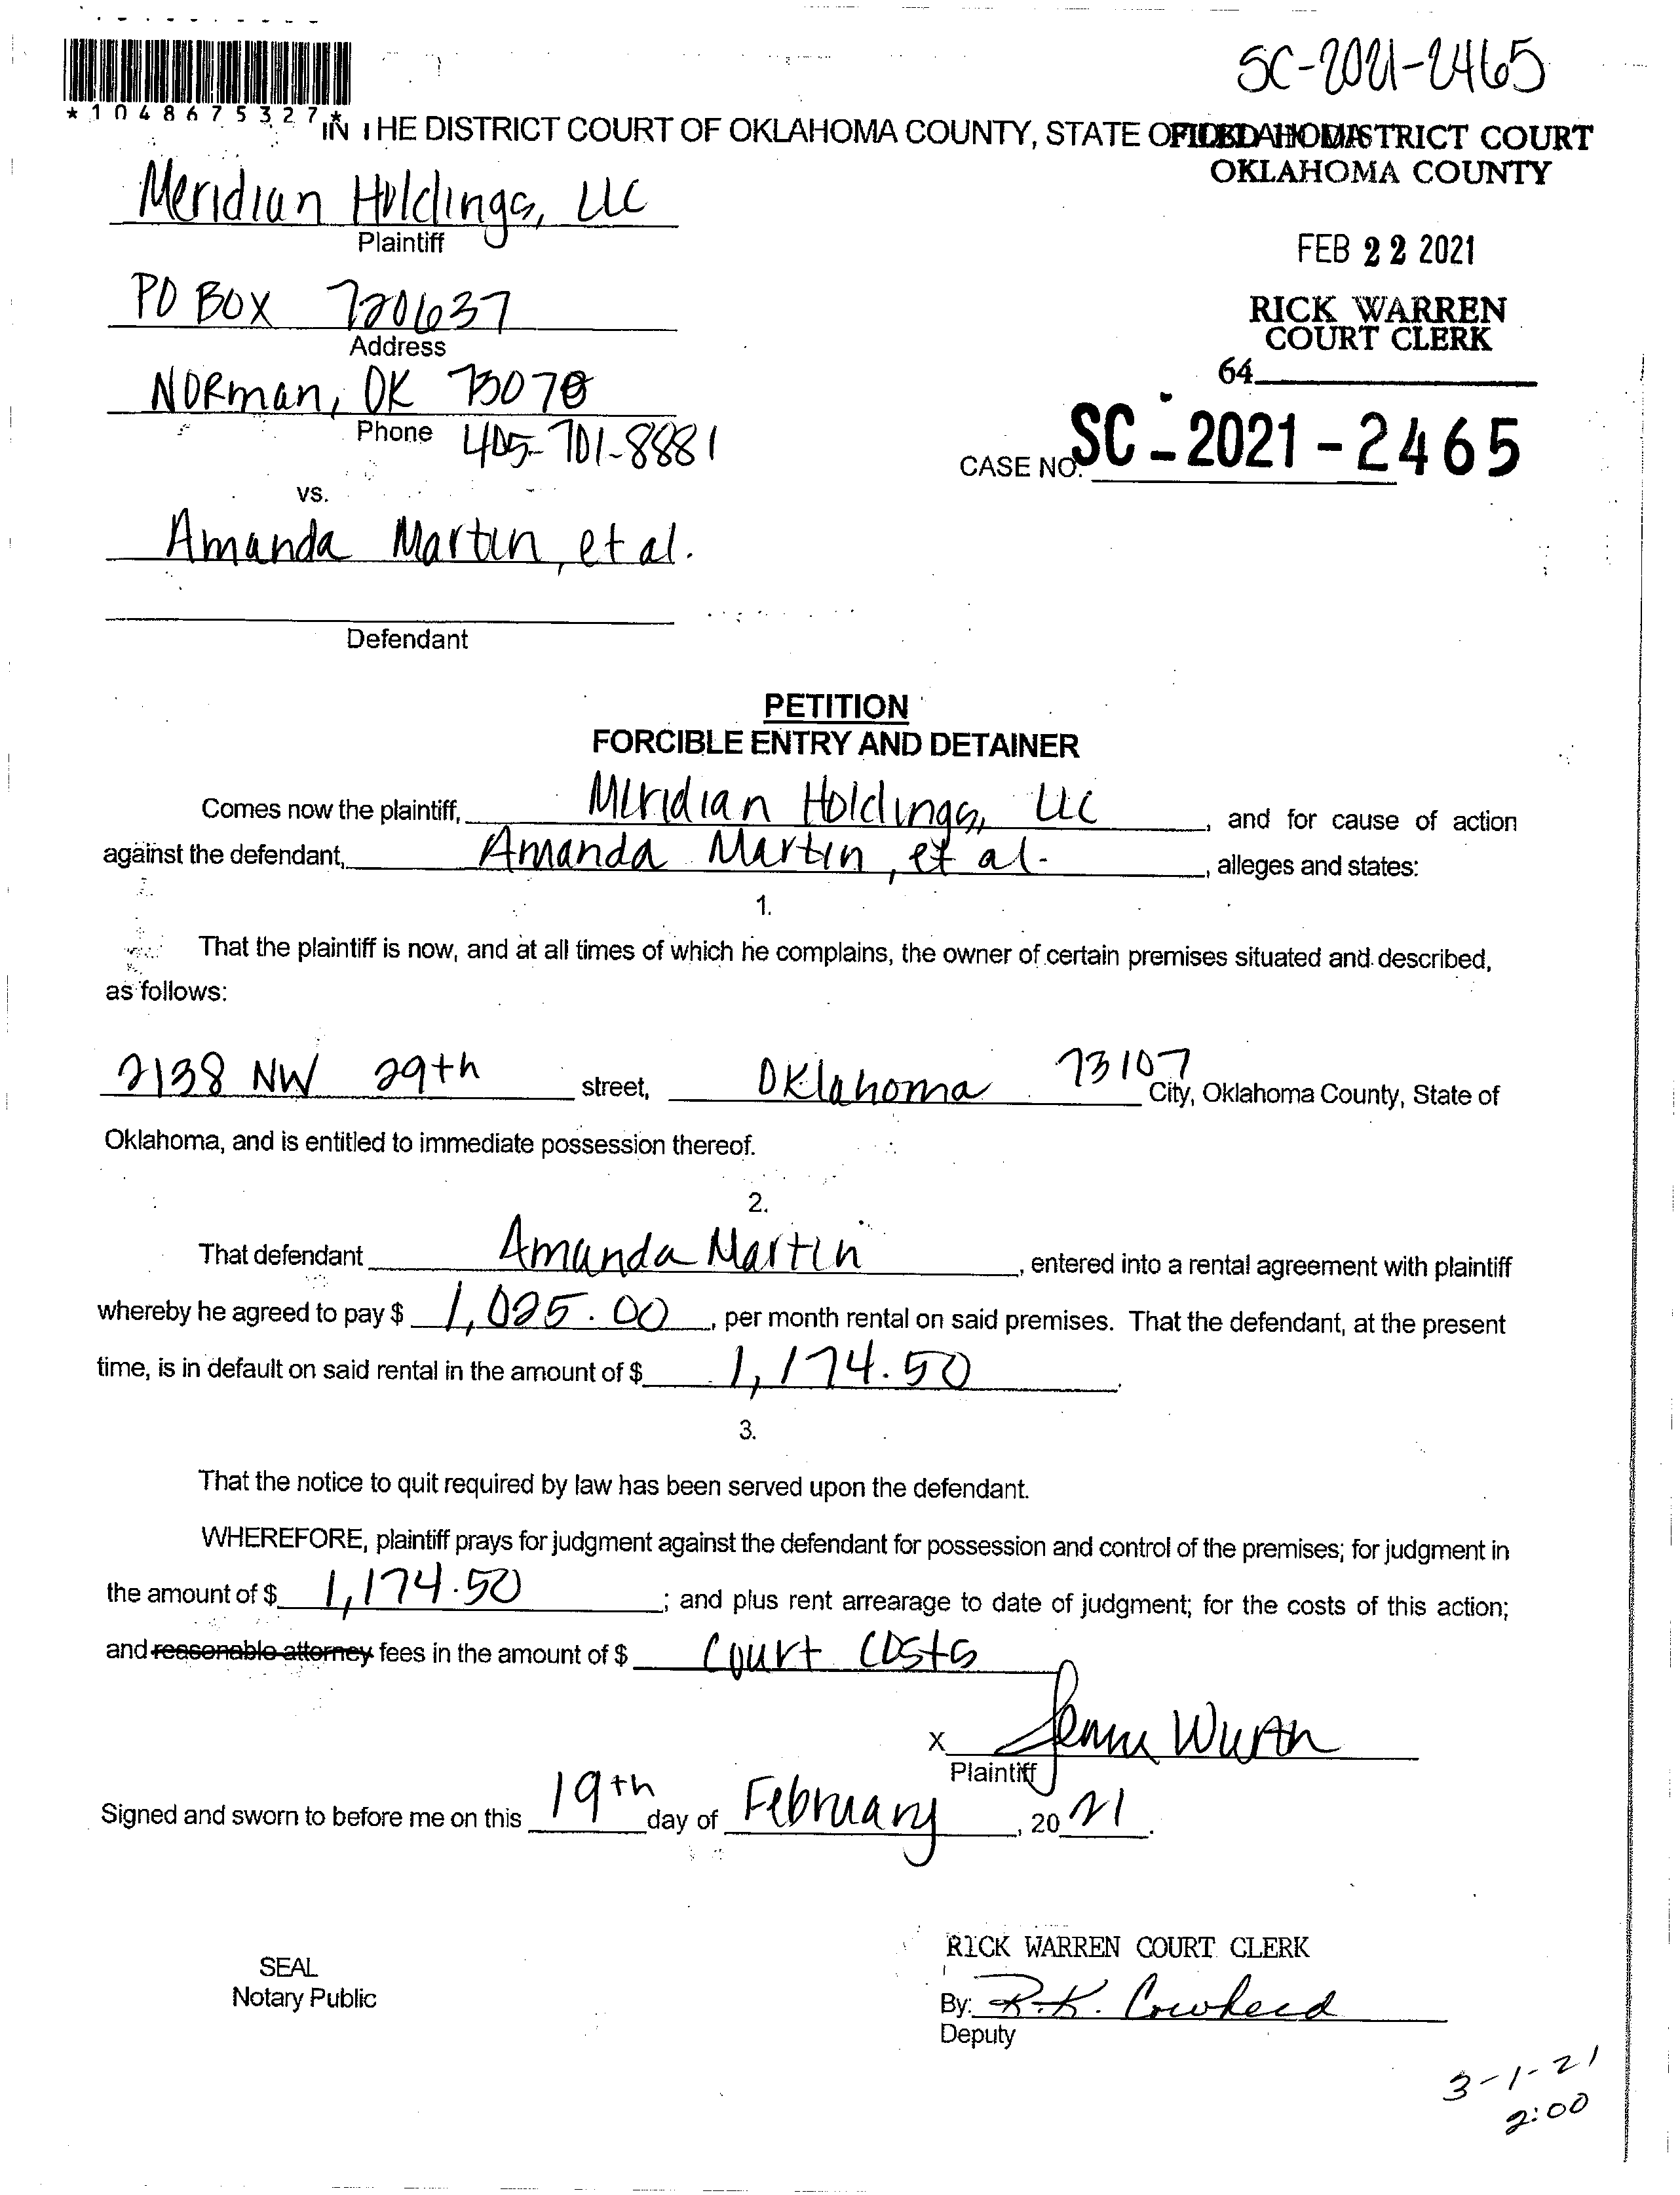 SC-2021-2465
*1048675327*
IN THE DISTRICT COURT OF OKLAHOMA COUNTY, STATE OF OKLAHOMA
FILED IN DISTRICT COURT
OKLAHOMA COUNTY
Meridian Holdings, LLC
Plaintiff
FEB 22 2021
PO BOX 720637
Address
RICK WARREN
COURT CLERK
64
Norman, OK 73070
Phone 405-701-8881
CASE NO. SC-2021-2465
vs.
Amanda Martin, et al.
Defendant
PETITION
FORCIBLE ENTRY AND DETAINER
Comes now the plaintiff, Meridian Holdings, LLC, and for cause of action
against the defendant, Amanda Martin, et al., alleges and states:
1.
That the plaintiff is now, and at all times of which he complains, the owner of certain premises situated and described,
as follows:
2138 NW 29th street, Oklahoma 73107 City, Oklahoma County, State of
Oklahoma, and is entitled to immediate possession thereof.
2.
That defendant Amanda Martin, entered into a rental agreement with plaintiff
whereby he agreed to pay $ 1,025.00, per month rental on said premises. That the defendant, at the present
time, is in default on said rental in the amount of $ 1,174.50.
3.
That the notice to quit required by law has been served upon the defendant.
WHEREFORE, plaintiff prays for judgment against the defendant for possession and control of the premises; for judgment in
the amount of $ 1,174.50; and plus rent arrearage to date of judgment; for the costs of this action;
and reasonable attorney fees in the amount of $ Court Costs
X
Plaintiff
Signed and sworn to before me on this 19th day of February, 2021.
SEAL
Notary Public
RICK WARREN COURT CLERK
By: R.K. Cowherd
Deputy
3-1-21
2:00